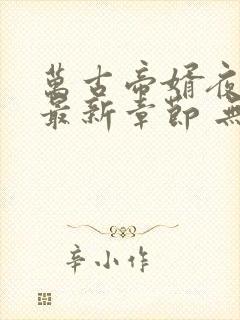 萬古帝婿夜
最新章節 無
辛小作